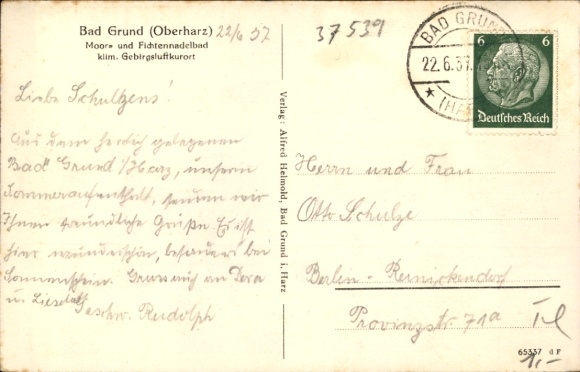 Bad Grund (Oberharz) 22/6 37
Moor- und Fichtennadelbad
klim. Gebirgsluftkurort
Liebe Schultzens!
Aus dem herrlich gelegenen
Bad Grund i/Harz, unserm
Sommeraufenthalt, senden wir
Ihnen freundliche Grüße. Es ist
hier wunderschön, besonders bei
Sonnenschein. Gruss auch an Dora
u. Lieselott
Geschw. Rudolph
Verlag: Alfred Helmold, Bad Grund i. Harz
37539
BAD GRUND
22.6.37
(HARZ)
6 6
Deutsches Reich
Herrn und Frau
Otto Schulze
Berlin-Reinickendorf
Provinzstr. 71a
65337 d F
1,-